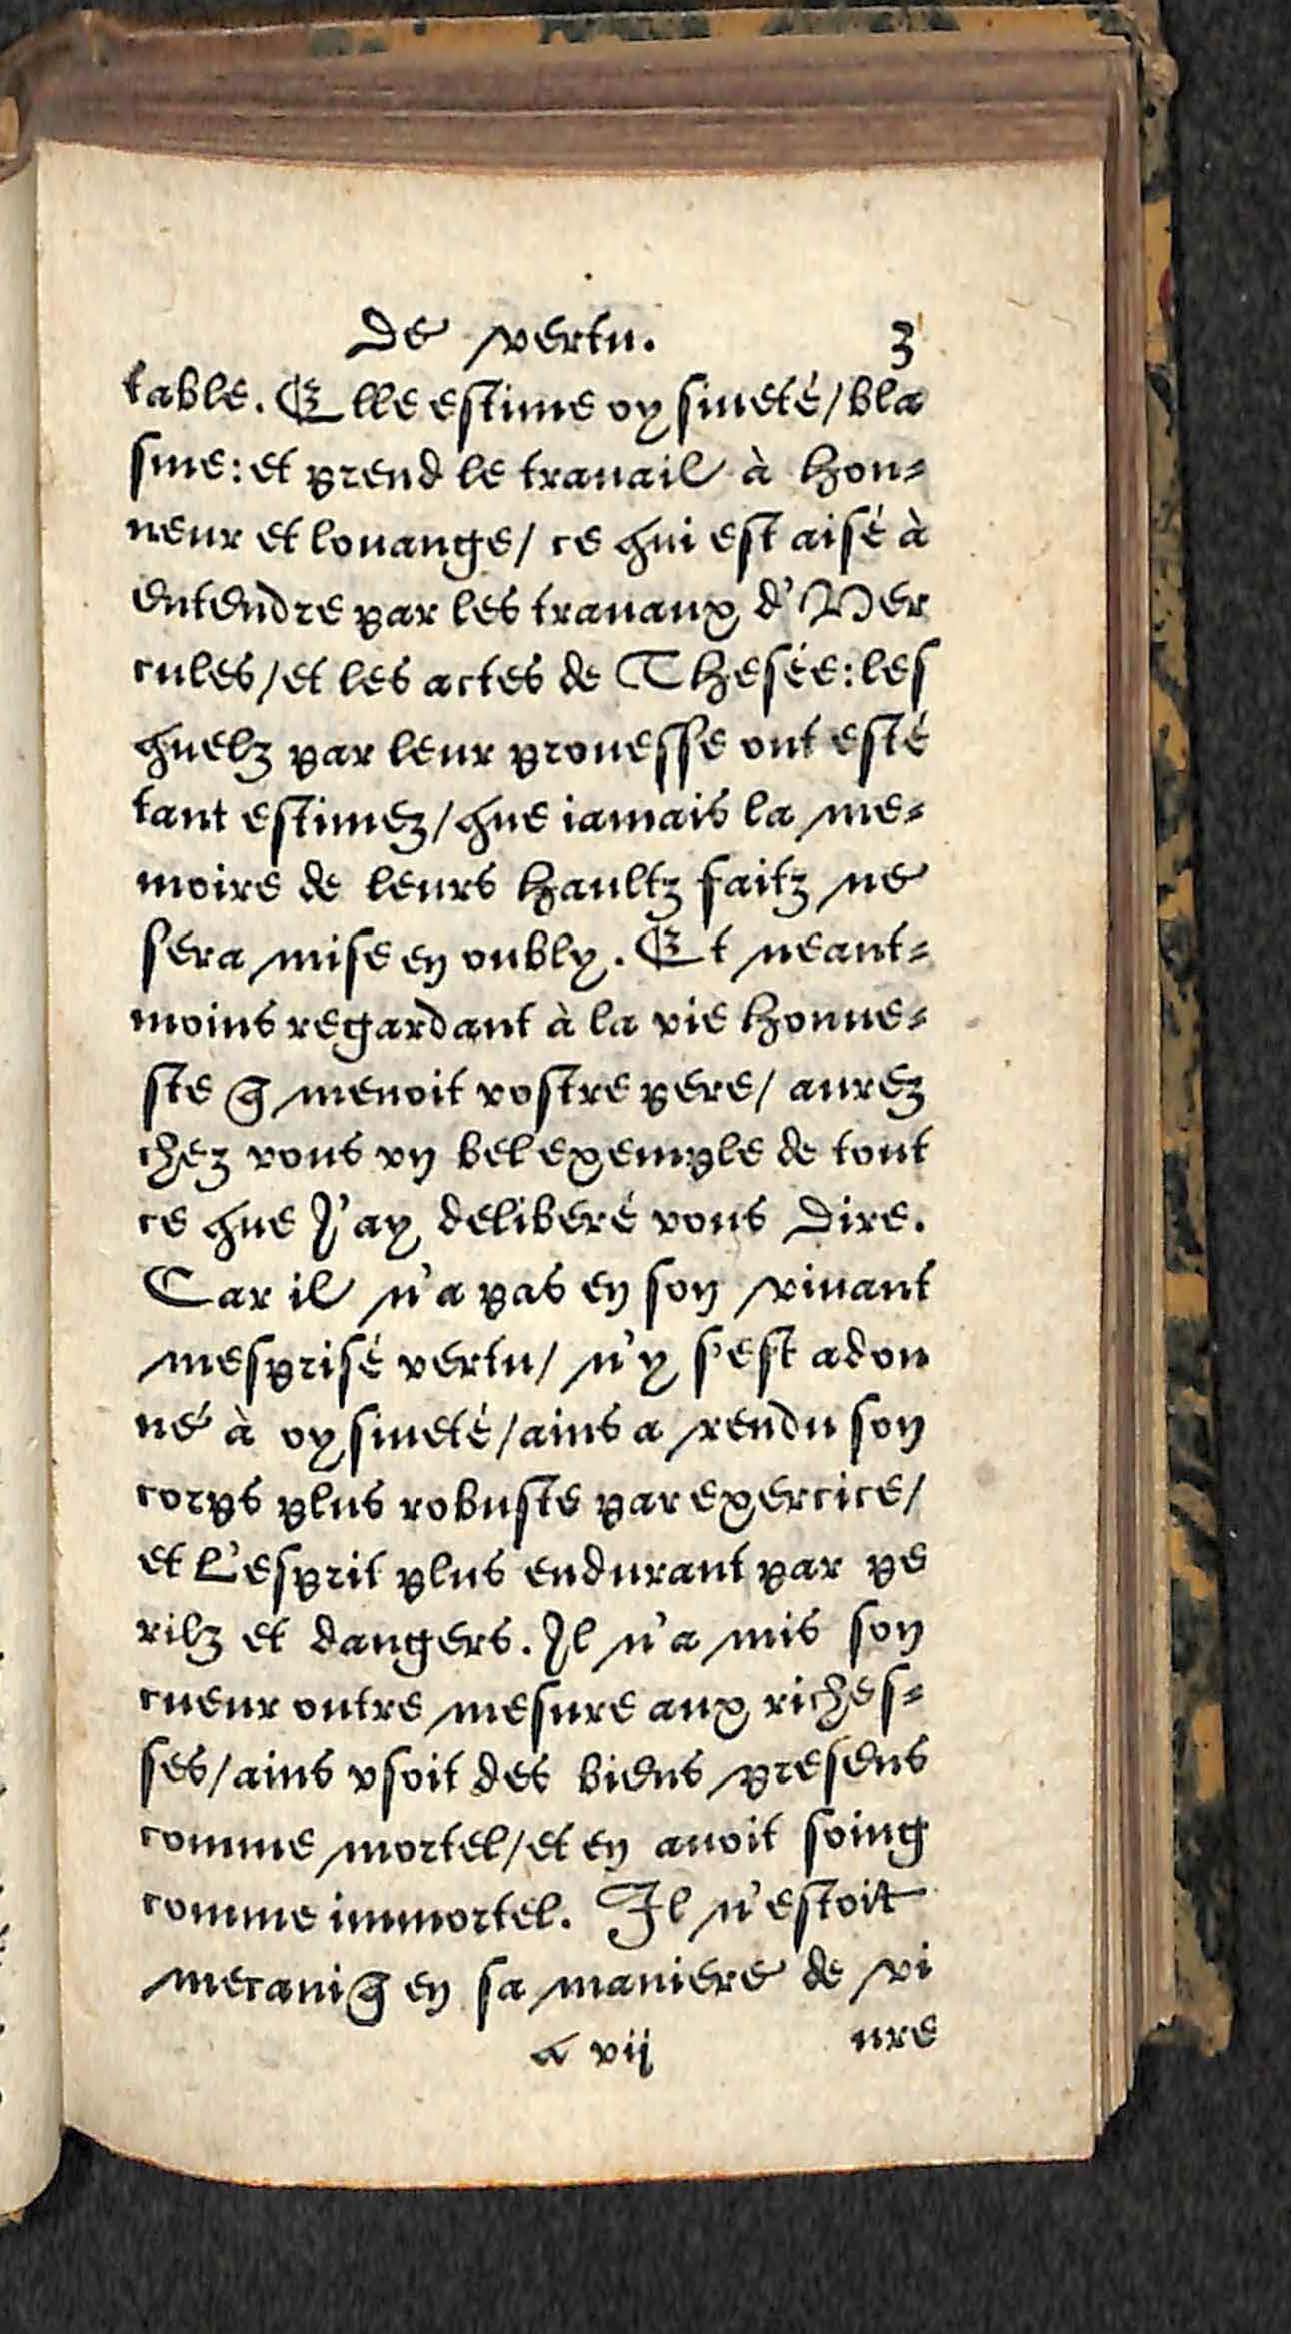 De vertu. 3
table. Elle estime oysiueté/bla
sme: et prend le trauail à hon-
neur et louange/ ce qui est aisé à
entendre par les trauaux d'Her
cules/et les actes de Thesée: les
quelz par leur prouesse ont esté
tant estimez/que iamais la me-
moire de leurs haultz faitz ne
sera mise en oubly. Et neant-
moins regardant à la vie honne-
ste q̃ menoit vostre pere/ aurez
chez vous vn bel exemple de tout
ce que J'ay deliberé vous dire.
Car il n'a pas en son viuant
mesprisé vertu/ n'y s'est adon
né à oysiueté/ains a rendu son
corps plus robuste par exercice/
et L'esprit plus endurant par pe
rilz et dangers. Il n'a mis son
cueur outre mesure aux riches-
ses/ains vsoit des biens presens
comme mortel/et en auoit soing
comme immortel. Il n'estoit
mecaniq̃ en sa maniere de vi
a vij ure